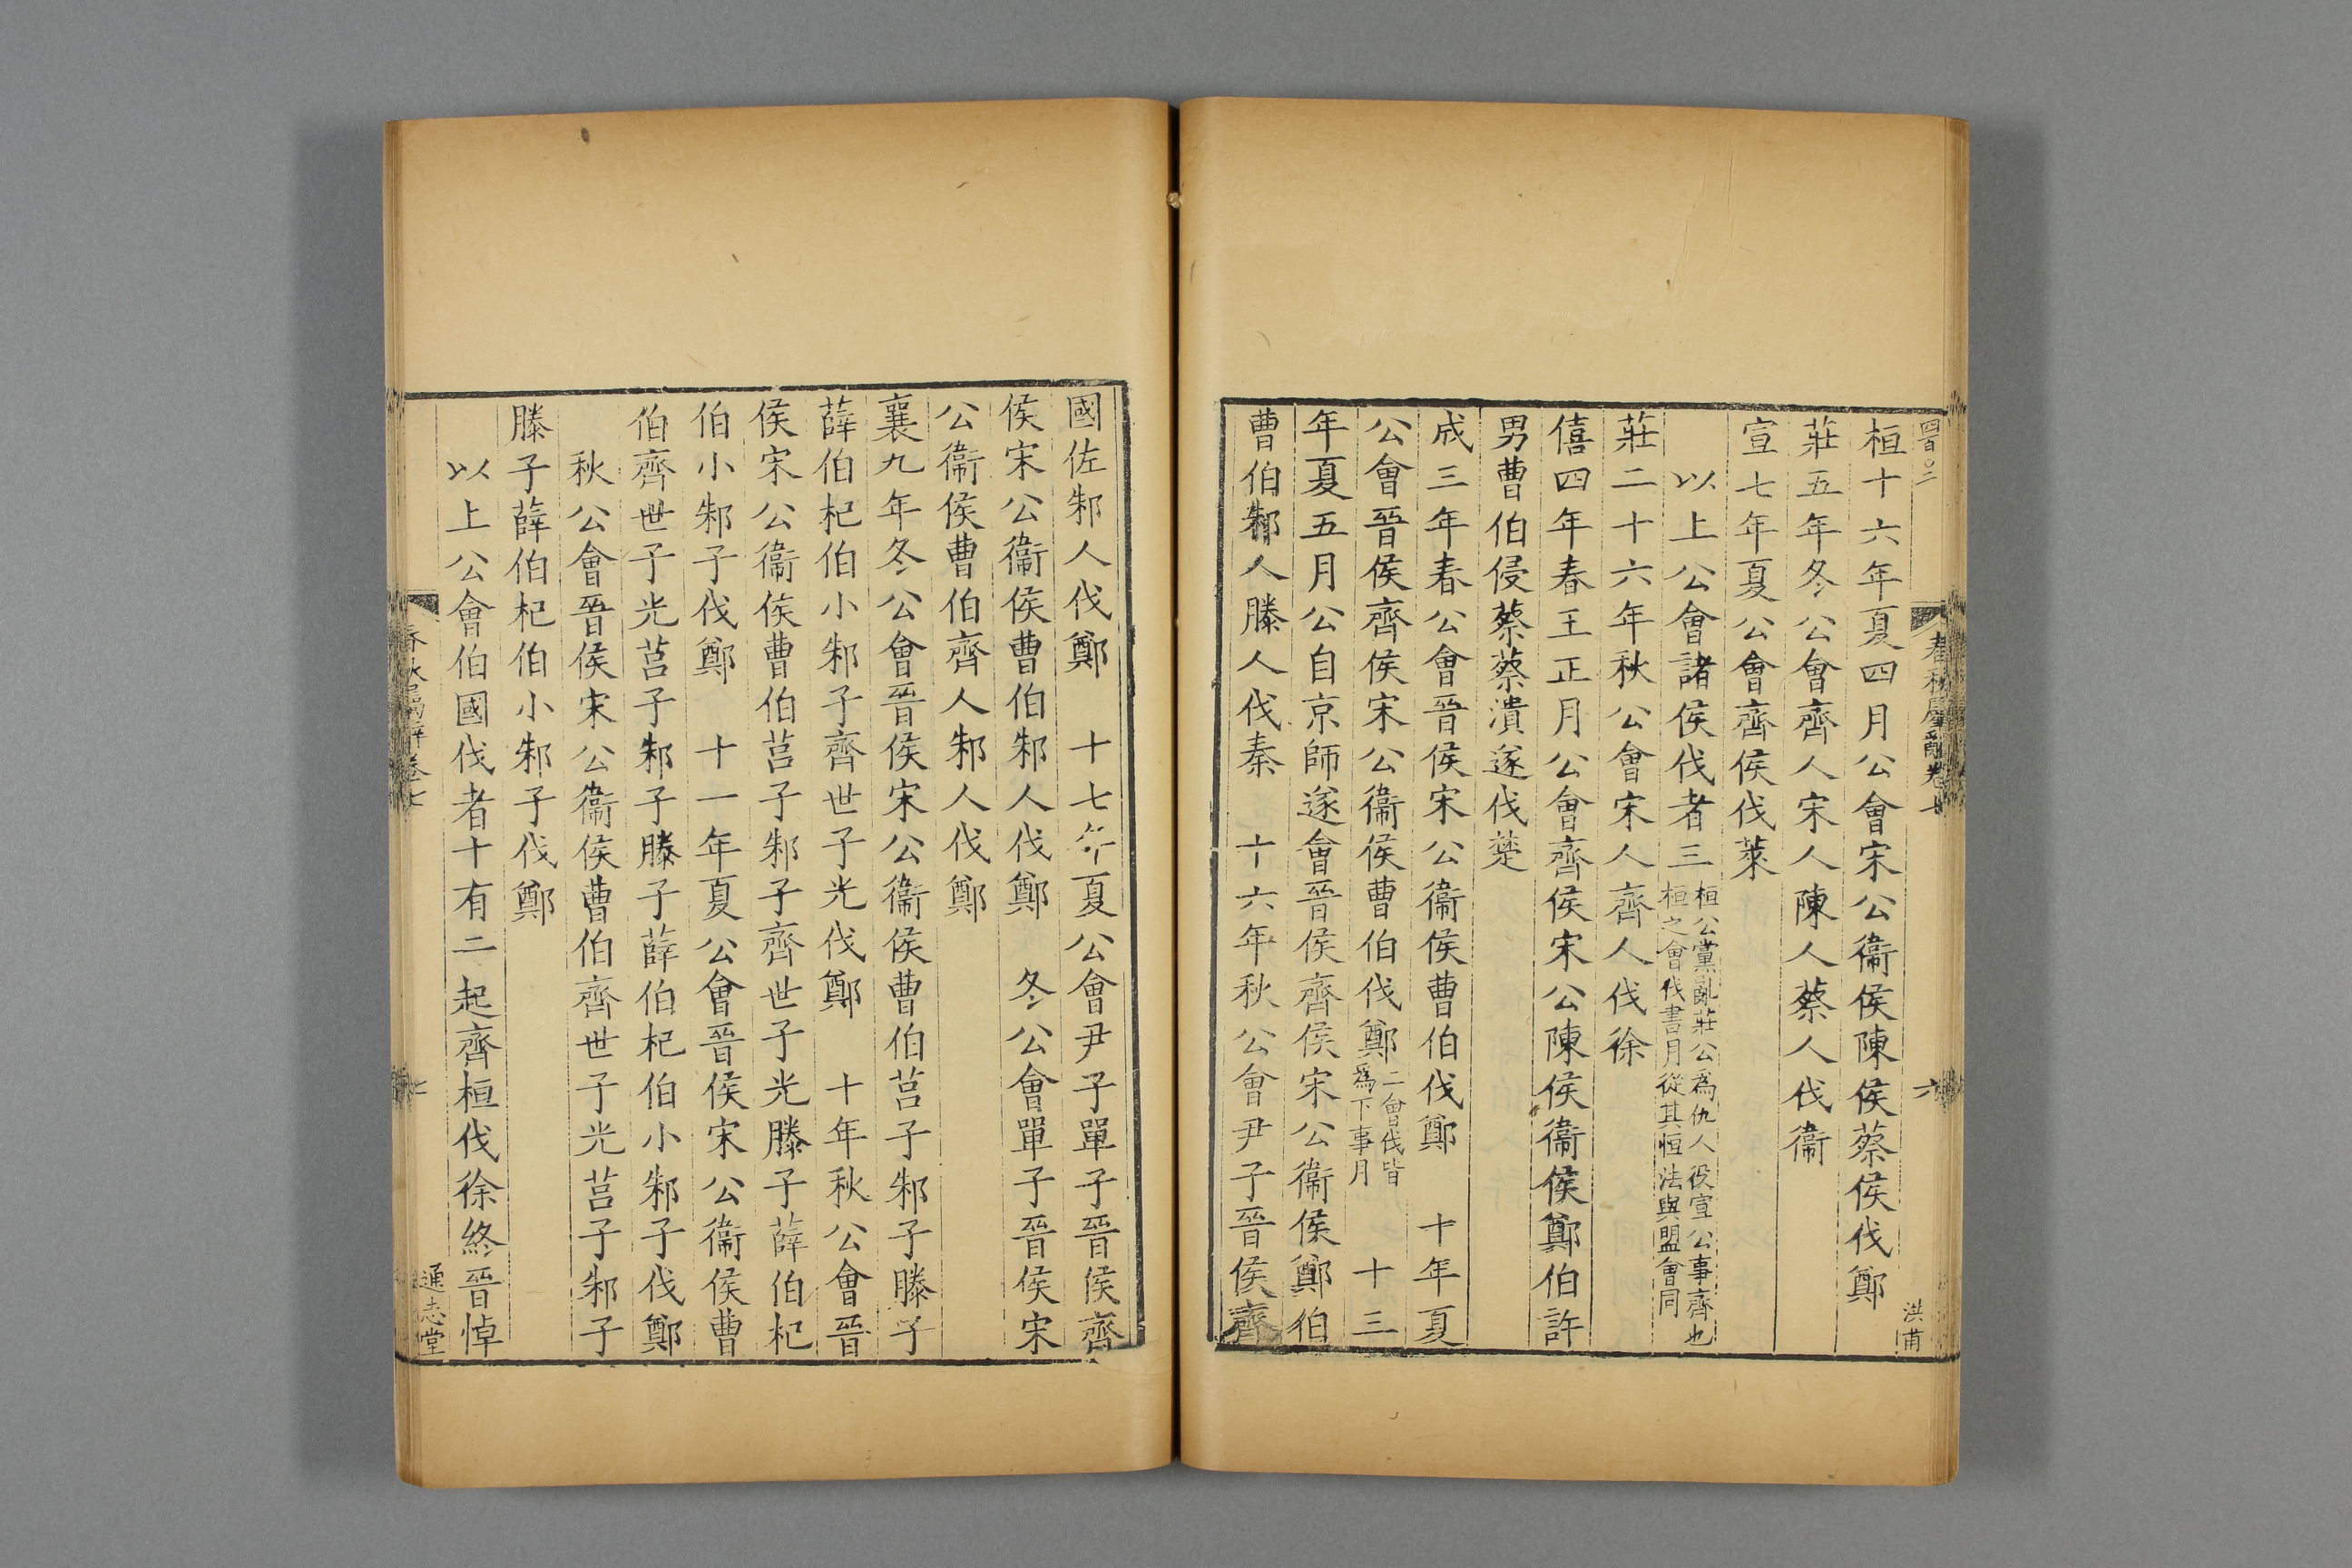 春秋屬辭卷七
六
洪甫
桓十六年夏四月公會宋公衞侯陳侯蔡侯伐鄭
莊五年冬公會齊人宋人陳人蔡人伐衞
宣七年夏公會齊侯伐萊
以上公會諸侯伐者三
桓公黨亂莊公爲仇人役宣公事齊也
桓之會伐書月從其恒法與盟會同
莊二十六年秋公會宋人齊人伐徐
僖四年春王正月公會齊侯宋公陳侯衞侯鄭伯許
男曹伯侵蔡蔡潰遂伐楚
成三年春公會晉侯宋公衞侯曹伯伐鄭 十年夏
公會晉侯齊侯宋公衞侯曹伯伐鄭二會伐皆爲下事月 十三
年夏五月公自京師遂會晉侯齊侯宋公衞侯鄭伯
曹伯邾人滕人伐秦 十六年秋公會尹子晉侯齊
國佐邾人伐鄭 十七年夏公會尹子單子晉侯齊
侯宋公衞侯曹伯邾人伐鄭 冬公會單子晉侯宋
公衞侯曹伯齊人邾人伐鄭
襄九年冬公會晉侯宋公衞侯曹伯莒子邾子滕子
薛伯杞伯小邾子齊世子光伐鄭 十年秋公會晉
侯宋公衞侯曹伯莒子邾子齊世子光滕子薛伯杞
伯小邾子伐鄭 十一年夏公會晉侯宋公衞侯曹
伯齊世子光莒子邾子滕子薛伯杞伯小邾子伐鄭
秋公會晉侯宋公衞侯曹伯齊世子光莒子邾子
滕子薛伯杞伯小邾子伐鄭
以上公會伯國伐者十有二起齊桓伐徐終晉悼
春秋屬辭卷七
通志堂